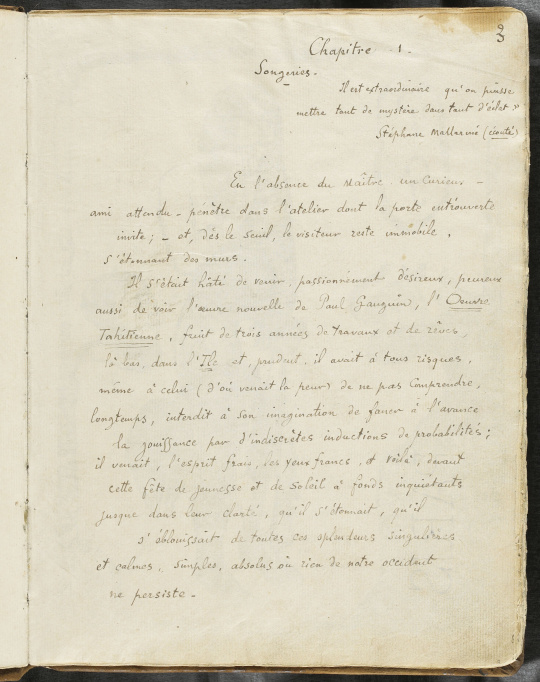 3
Chapitre - 1 -
Songeries -
Il est extraordinaire qu'on puisse
mettre tant de mystère dans tant d'éclat »
Stéphane Mallarmé (écouté)
En l'absence du Maître un curieux -
ami attendu - pénètre dans l'atelier dont la porte entrouverte
invite ; - et, dès le seuil, le visiteur reste immobile,
s'étonnant des murs.
Il s'était hâté de venir, passionnément désireux, peureux
aussi de voir l'œuvre nouvelle de Paul Gauguin, l'Oeuvre
Tahitienne, fruit de trois années de travaux et de rêves,
là bas, dans l'Ile et, prudent, il avait à tous risques,
même à celui (d'où venait la peur) de ne pas comprendre,
longtemps, interdit à son imagination de faner à l'avance
la jouissance par d'indiscrètes inductions de probabilités ;
il venait, l'esprit frais, les yeux francs, et voilà, devant
cette fête de jeunesse et de soleil à fonds inquiétants
jusque dans leur clarté, qu'il s'étonnait, qu'il
s'éblouissait de toutes ces splendeurs singulières
et calmes, simples, absolus où rien de notre occident
ne persiste -